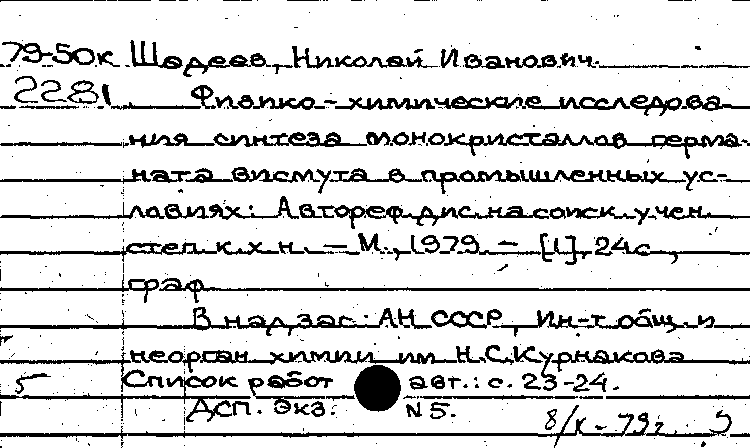 79-50к Шадеев, Николай Иванович.
2281. Физико-химические исследова-
ния синтеза монокристаллов герма-
ната висмута в промышленных ус-
ловиях: Автореф. дис. на соиск. учен.
степ. к. х. н. – М., 1979. – [1], 24 с.,
граф.
В надзаг.: АН СССР, Ин-т общ. и
неорган. химии им. Н.С. Курнакова
5 Список работ авт.: с. 23-24.
ДСП. Экз. N 5.
8/X - 79 г.